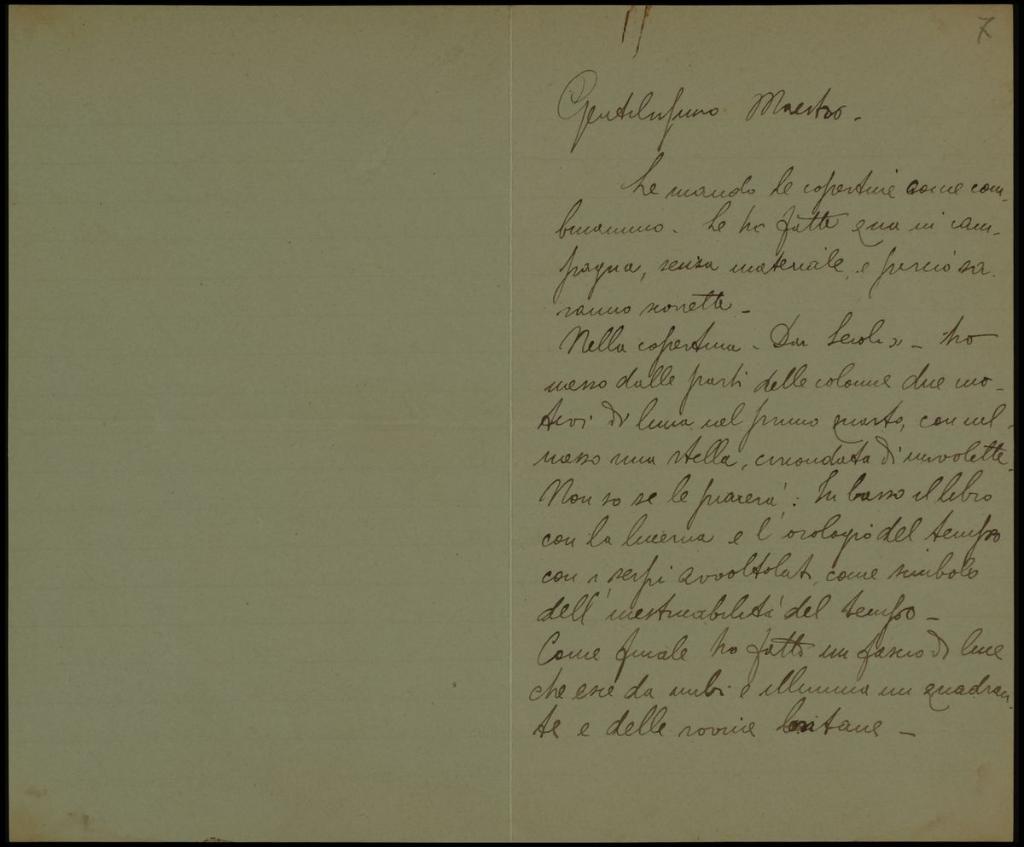 7
Gentilissimo Maestro.
Le mando le copertine come com-
binammo. Le ho fatte qua in cam-
pagna, senza materiale, e perciò sa-
ranno scorrette -
Nella copertina - Dai Secoli » - ho
messo dalle parti delle colonne due mo-
tivi di luna nel primo quarto, con nel
mezzo una stella, circondata di nuvolette.
Non so se le piacerà: In basso il libro
con la lucerna e l'orologio del tempo
con i serpi avvoltolati, come simbolo
dell'inestricabilità del tempo -
Come finale ho fatto un fascio di luce
che esce da nubi e illumina un quadran-
te e delle rovine lontane -